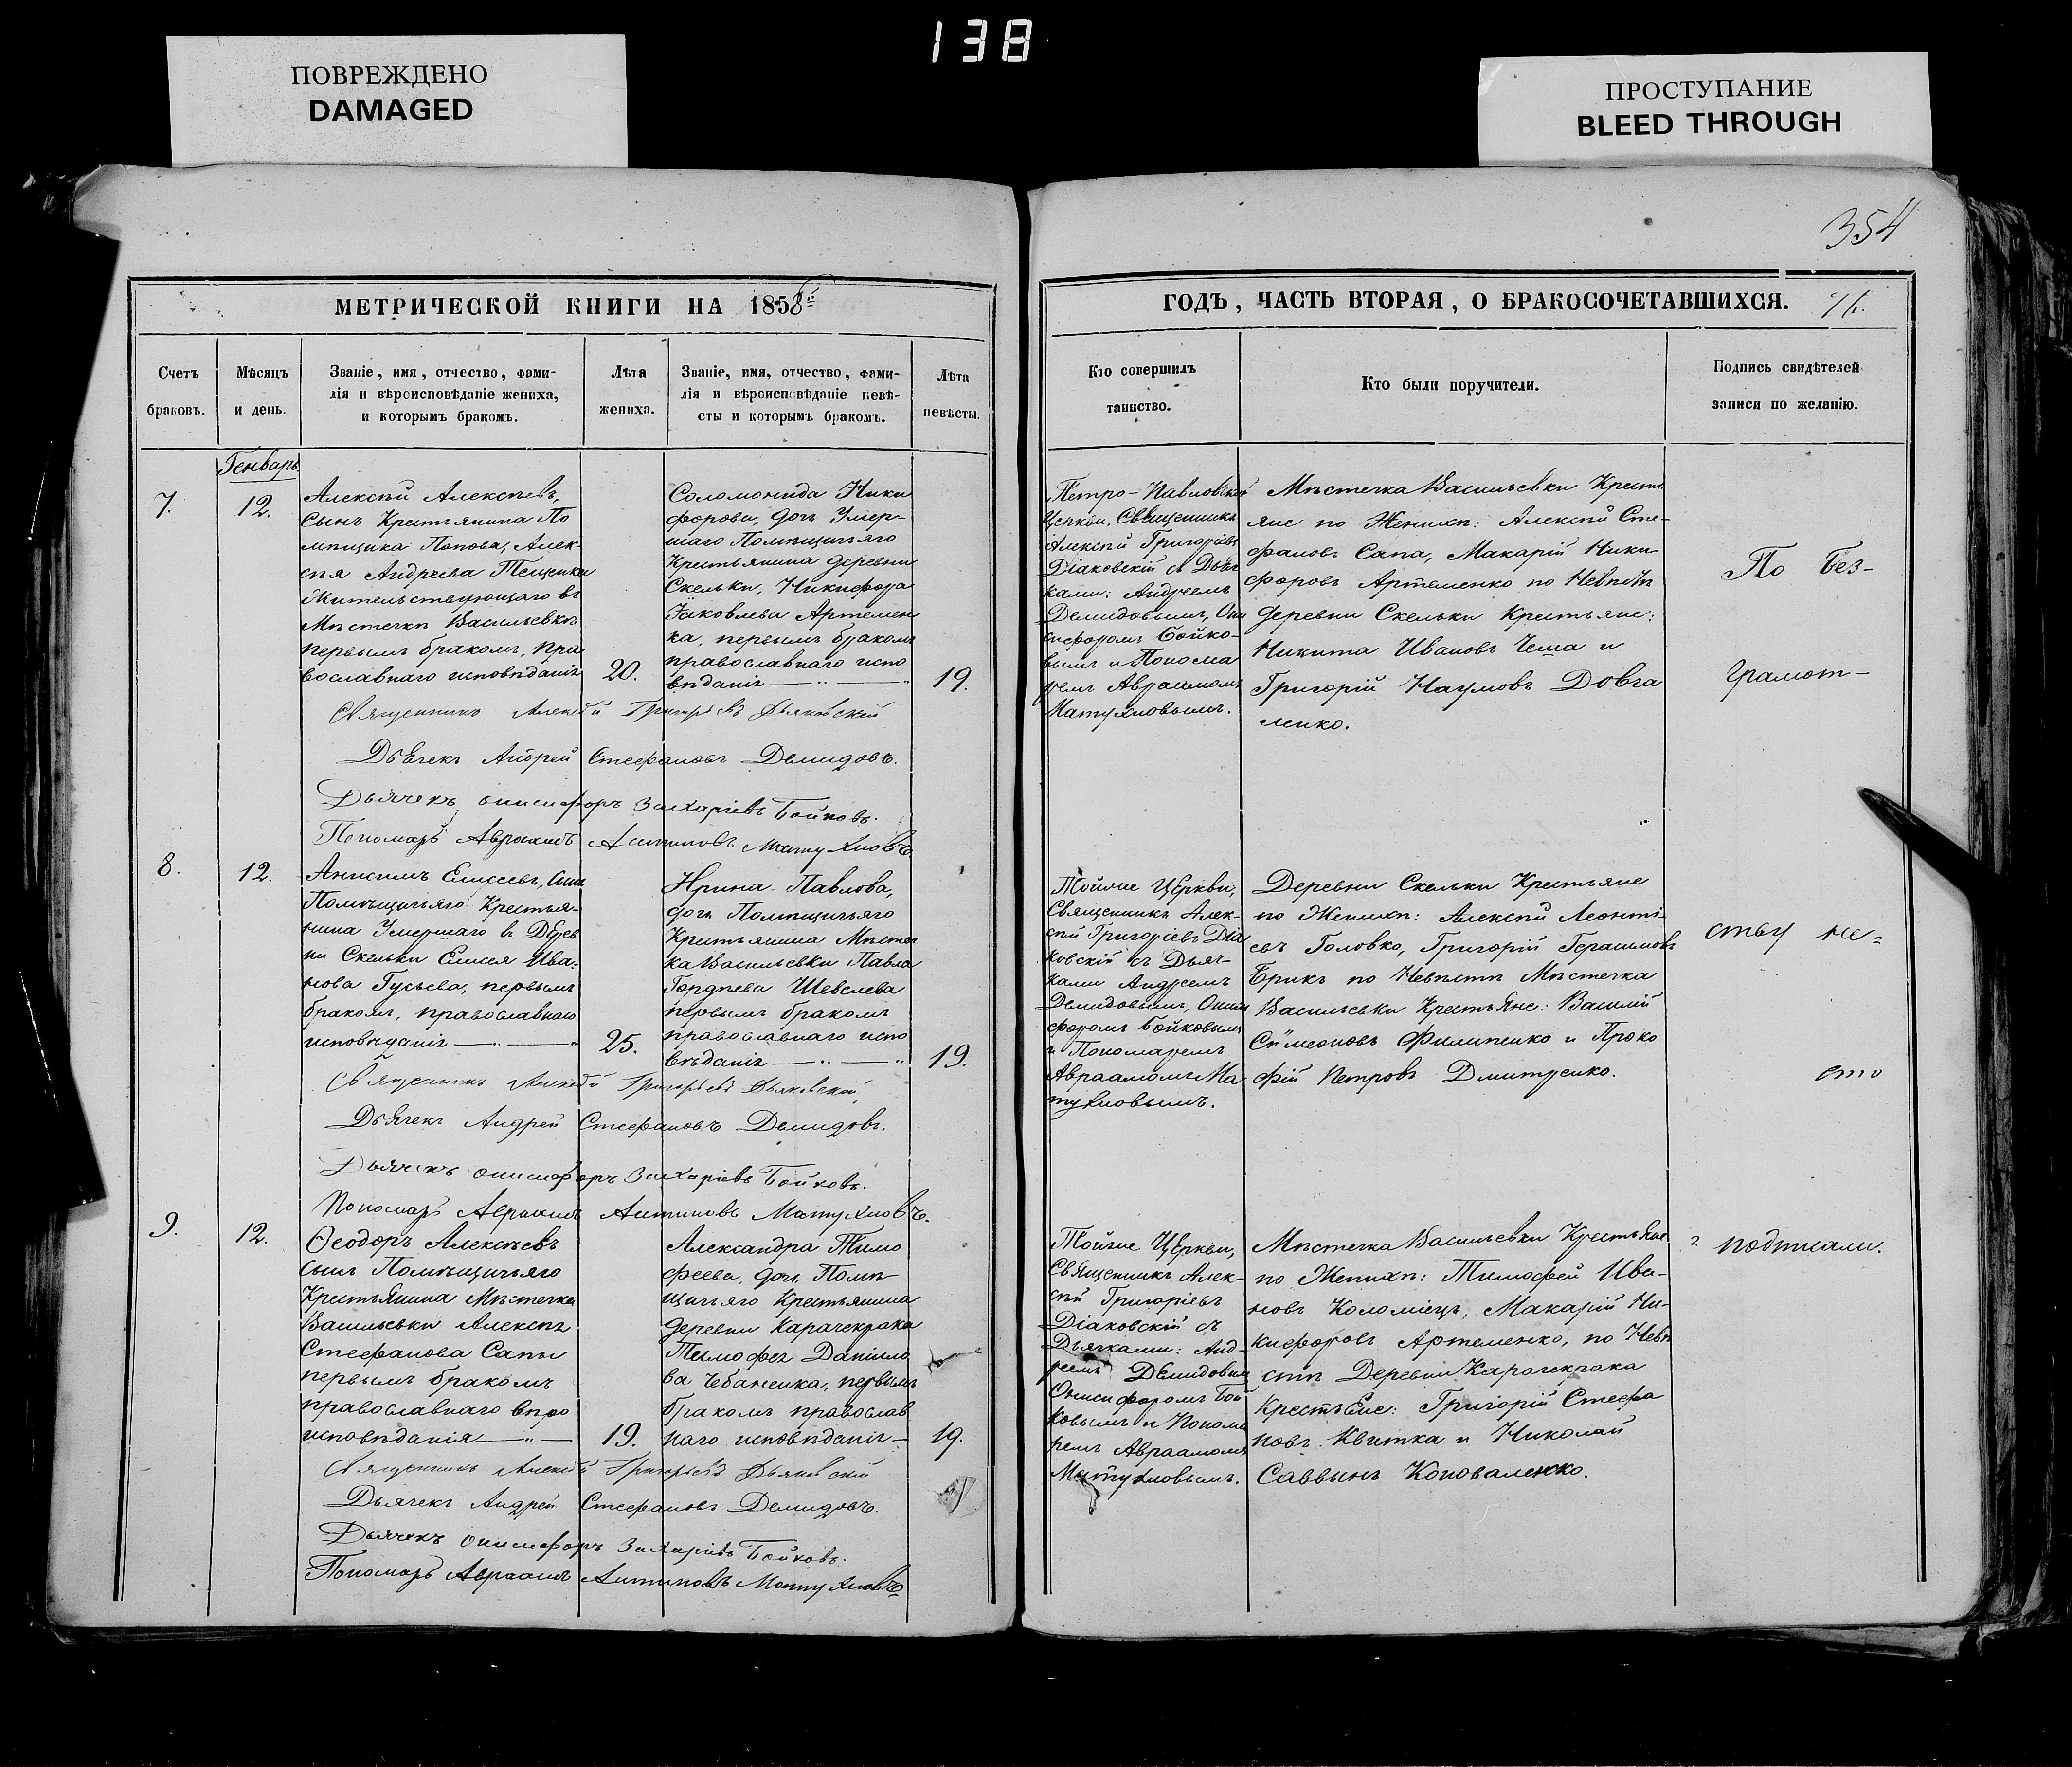 138
ПОВРЕЖДЕНО
DAMAGED
ПРОСТУПАНИЕ
BLEED THROUGH
354
МЕТРИЧЕСКОЙ КНИГИ НА 1858
ГОДЪ, ЧАСТЬ ВТОРАЯ, О БРАКОСОЧЕТАВШИХСЯ.
Счетъ
браковъ.
Мѣсяцъ
и день.
Званіе, имя, отчество, фами-
лія и вѣроисповѣданіе жениха,
и которымъ бракомъ.
Лѣта
жениха.
Званіе, имя, отчество, фами-
лія и вѣроисповѣданіе невѣ-
сты и которымъ бракомъ.
Лѣта
невѣсты.
Кто совершилъ
таинство.
Кто были поручители.
Подпись свидѣтелей
записи по желанію.
Генварь
7.
12.
Алексѣй Алексѣевъ,
Сынъ Крестьянина По
мѣщика Попова, Алек-
сѣя Андреева Пещенка
Жительствующаго въ
Мѣстечкѣ Васильевкѣ
первымъ бракомъ, Пра
вославнаго исповѣданія
20.
Соломонида Ники
форова, дочь Умер-
шаго Помѣщичьяго
Крестьянина деревни
Скельки, Никифора
Іаковлева Артемен
ка, первымъ бракомъ
православнаго испо
вѣданія
19.
Петро-Павловской
Церкви, Священникъ
Алексѣй Григоріевъ
Діаковскій съ Дьяч
ками: Андреемъ
Демидовымъ, Они
сифоромъ Бойко-
вымъ и Понома
ремъ Авраамомъ
Матухновымъ.
Мѣстечка Васильевки Крестья
яне по Женихѣ: Алексѣй Сте-
фановъ Сапа, Макарій Ники
форовъ Артеменко по Невѣстѣ
деревни Скельки Крестьяне:
Никита Ивановъ Чеша и
Григорій Наумовъ Довга
ленко.
По без-
грамот-
Священникъ Алексѣй Григорьевъ Дьяковскій
Дьячекъ Андрей Стефановъ Демидовъ.
Дьячекъ Онисифоръ Захаріевъ Бойковъ.
Пономарь Авраамъ Антиповъ Матухновъ.
8.
12.
Анисимъ Елисеевъ, Сынъ
Помѣщичьяго Крестья-
нина Умершаго въ Дерев
ни Скельки Елисея Ива-
нова Гусьева, первымъ
бракомъ, православнаго
исповѣданія
25.
Ирина Павлова,
дочь Помѣщичьяго
Крестьянина Мѣстеч
ка Васильевки Павла
Гордѣева Шевелева
первымъ бракомъ
православнаго испо
вѣданія
19.
Тойже Церкви,
Священникъ Алек-
сѣй Григоріевъ Діа
ковскій съ Дьяч-
ками Андреемъ
Демидовымъ, Ониси
форомъ Бойковымъ
и Пономаремъ
Авраамомъ Ма
тухновымъ.
Деревни Скельки Крестьяне
по Женихѣ: Алексѣй Леонті-
евъ Головко, Григорій Герасимовъ
Брикъ по Невѣстѣ Мѣстечка
Васильевки Крестьяне: Василій
Сѵмеоновъ Филипенко и Проко
фій Петровъ Дмитренко.
ству не-
Священникъ Алексѣй Григорьевъ Дьяковскій
Дьячекъ Андрей Стефановъ Демидовъ.
Дьячекъ Онисифоръ Захаріевъ Бойковъ.
Пономарь Авраамъ Антиповъ Матухновъ.
9.
12.
Ѳеодоръ Алексѣевъ
сынъ Помѣщичьяго
Крестьянина Мѣстечка
Васильевки Алексѣя
Стефанова Сапы
первымъ бракомъ
православнаго
исповѣданія
19.
Александра Тимо
феева, дочь Помѣ
щичьяго Крестьянина
деревни Карачекрака
Тимофея Даніило
ва Чебаненка, первымъ
бракомъ православ
наго исповѣданія
19.
Тойже Церкви,
Священникъ Алек-
сѣй Григоріевъ
Діаковскій съ
Дьячками: Анд-
реемъ Демидовымъ
Онисифоромъ Бой
ковымъ и Понома
ремъ Авраамомъ
Матухновымъ.
Мѣстечка Васильевки Крестьяне
по Женихѣ: Тимофей Ива-
новъ Коломіецъ, Макарій Ни-
кифоровъ Артеменко, по Невѣ
стѣ Деревни Карачекрака
Крестьяне: Григорій Стефа
новъ Квитка и Николай
Саввинъ Коноваленко.
подписали.
Священникъ Алексѣй Григорьевъ Дьяковскій
Дьячекъ Андрей Стефановъ Демидовъ.
Дьячекъ Онисифоръ Захаріевъ Бойковъ.
Пономарь Авраамъ Антиповъ Матухновъ